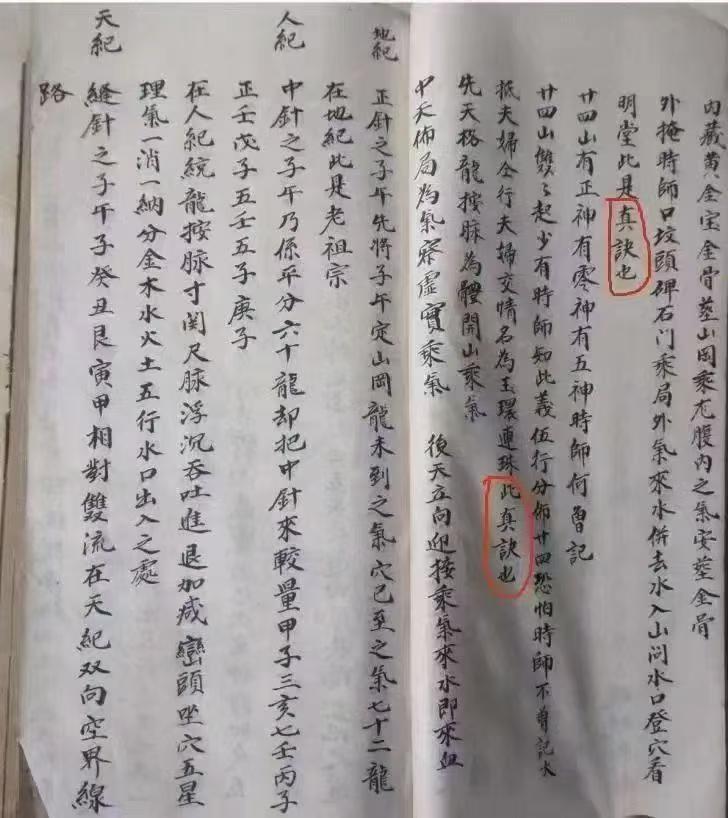 內藏黄金宝金骨塟山岡乘尨腹内之氣安塟金骨
外掩時師口坟頭碑石门乘局外氣來水併去水入山问水口登穴看
明堂此是真訣也
廿四山有正神有零神有五神時師何曽記
廿四山雙〻起少有時師知此義伍行分佈廿四恐怕時師不曽記大
抵夫婦仝行夫婦交情名為玉環連珠此真訣也
先天格龍按脉為體開山乘氣
中天佈局為氣察虛實乘氣 後天立向迎接乘氣來水即來血
地紀 正針之子午先將子午定山岡龍未到之氣穴已至之氣七十二龍
在地紀此是老祖宗
人紀 中針之子午乃係平分六十龍却把中針來較量甲子三亥七壬丙子
正壬戊子五壬五子庚子
在人紀統龍按脉寸関尺脉浮沉吞吐進退加减巒頭坐穴五星
理氣一消一納分金木水火土五行水口出入之處
天紀 縫針之子午子癸丑艮寅甲相對雙流在天紀双向空界線
路